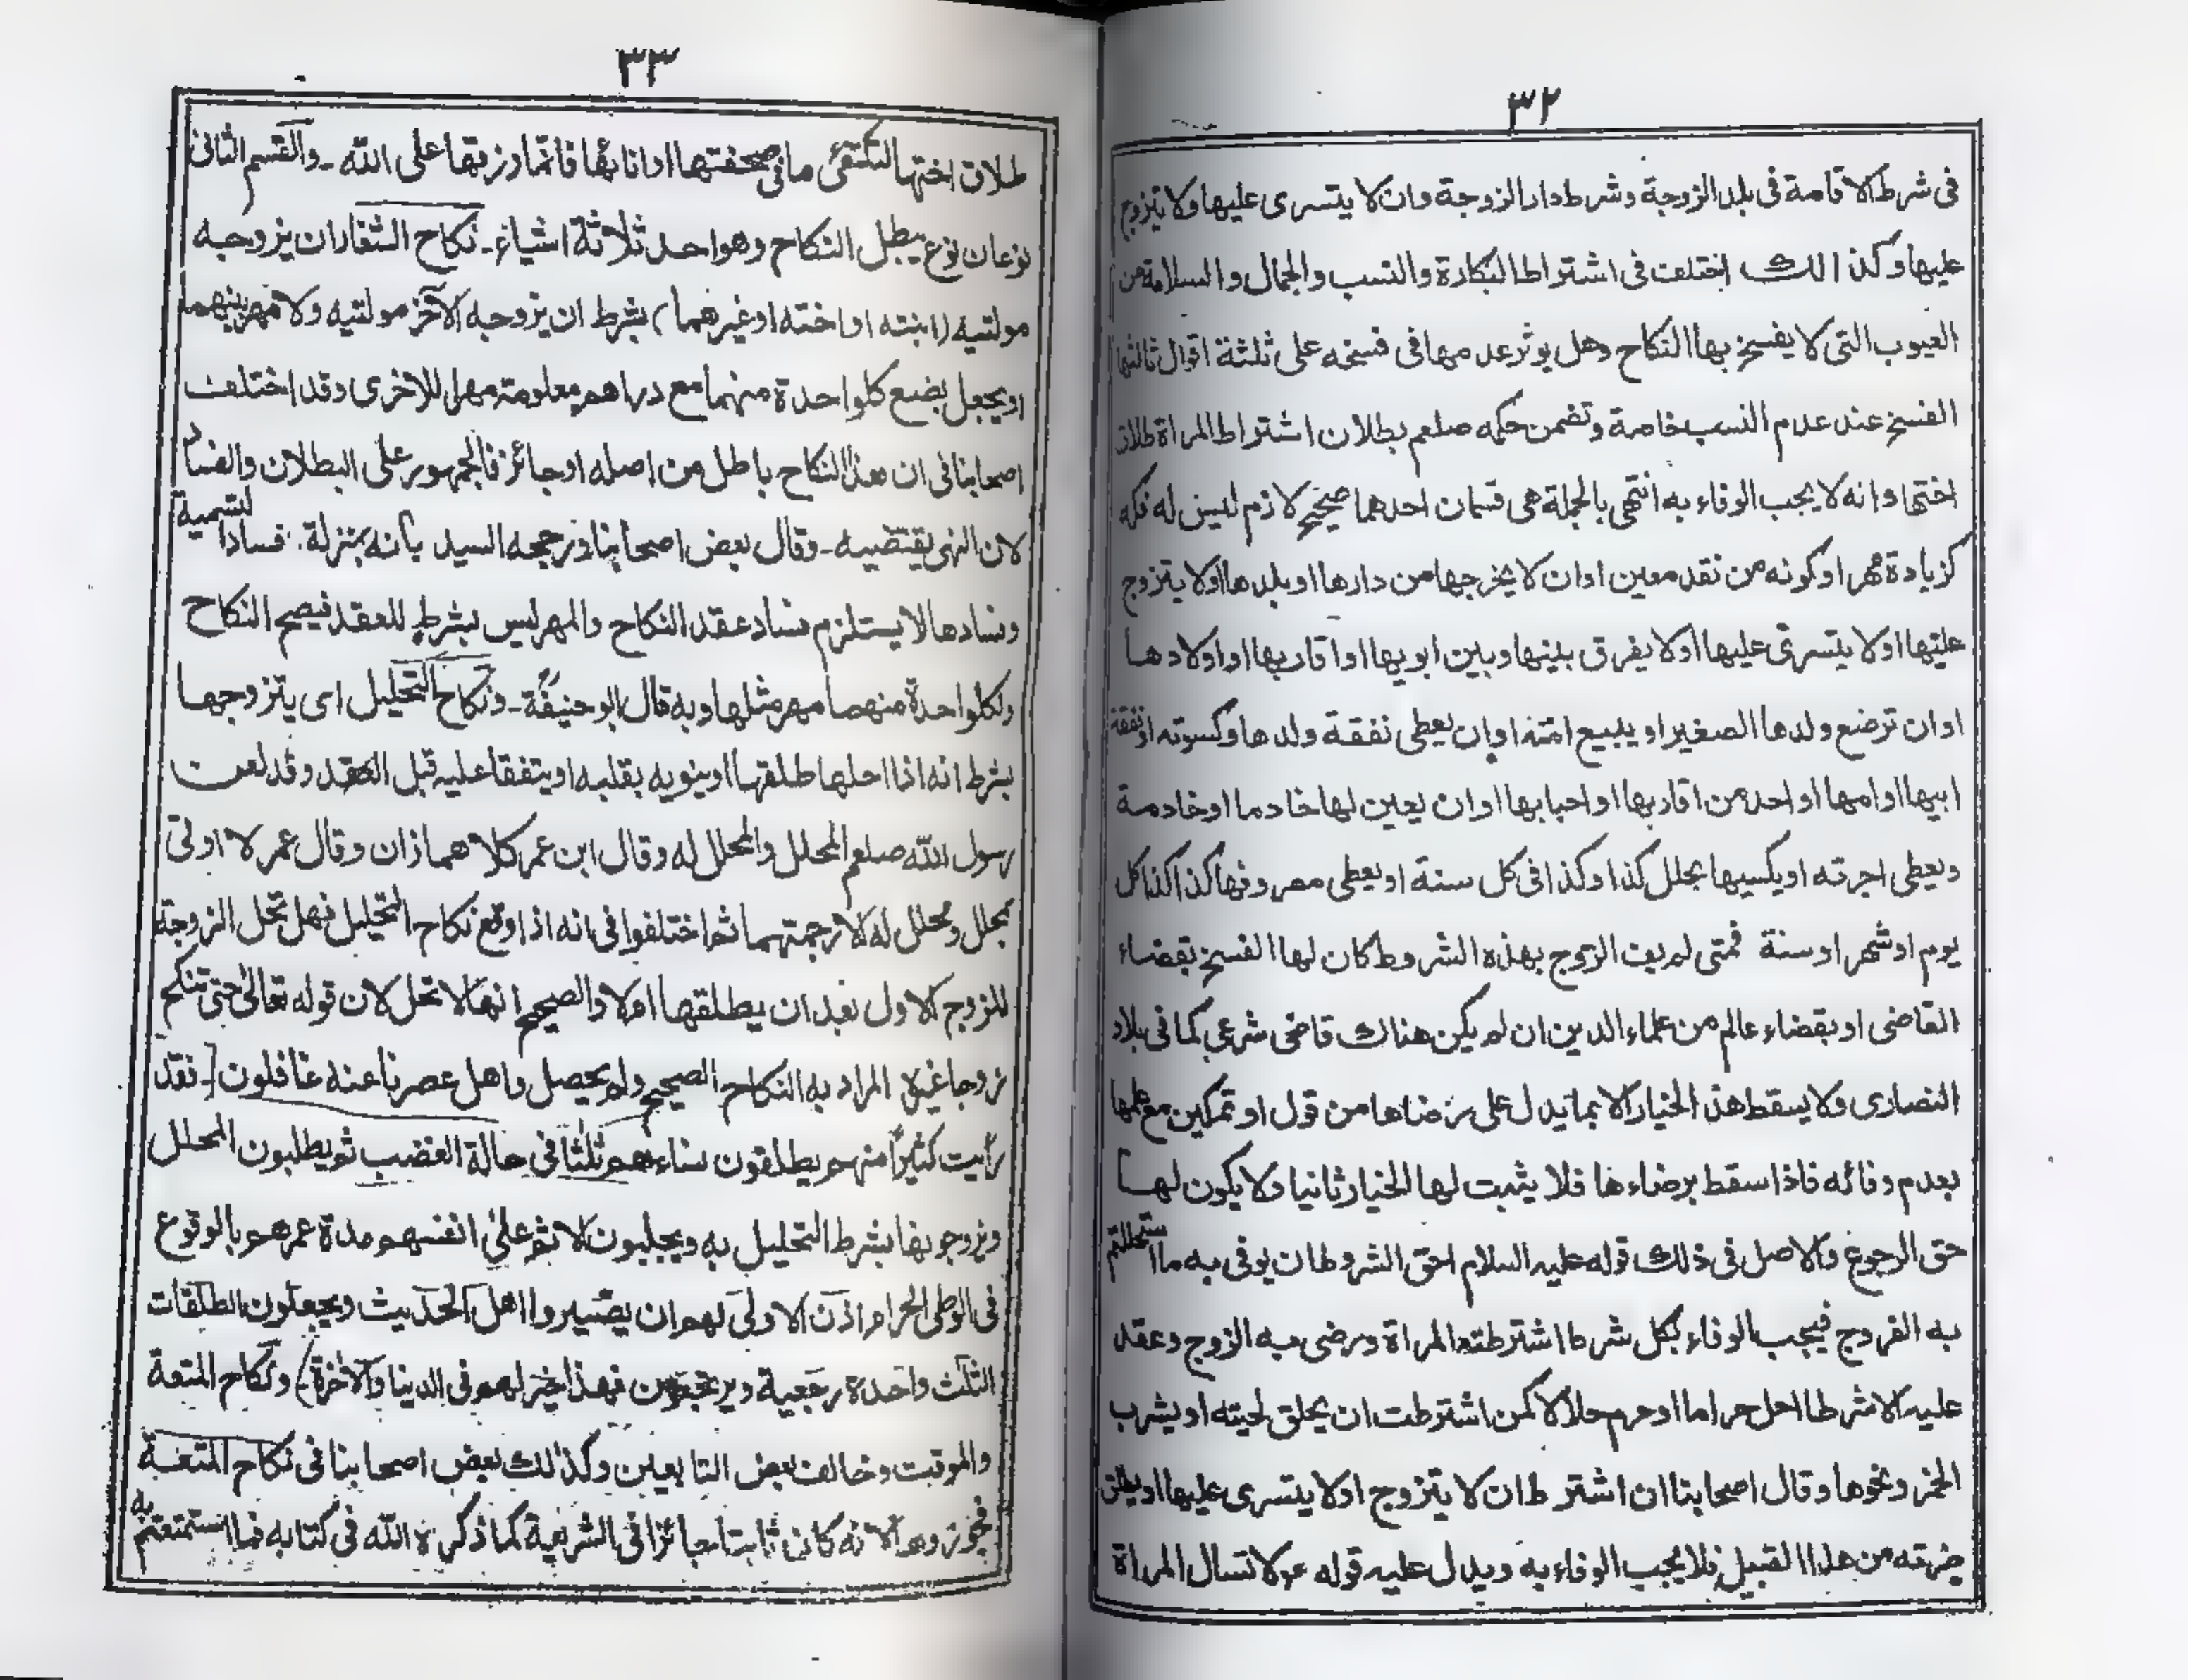 ٣٢
فى شرط الاقامة فى بلد الزوجة وشرط دار الزوجة وان لا يتسرى عليها ولا يتزوج
عليها وكذالك اختلف فى اشتراط البكارة والنسب والجمال والسلامة من
العيوب التى لا يفسخ بها النكاح وهل يوثر عدمها فى فسخه على ثلثة اقوال ثالثها
الفسخ عند عدم النسب خاصة وتضمن حكمه صلعم بطلان اشتراط المراة طلاق
اختها وانه لا يجب الوفاء به انتهى بالجملة هى قسمان احدهما صحيح لازم ليس له فكه
كزيادة مهر او كونه من نقد معين او ان لا يخرجها من دارها او بلدها اولا يتزوج
عليها اولا يتسرى عليها اولا يفرق بينها وبين ابويها او اقاربها او اولادها
او ان ترضع ولدها الصغير او يبيع امته او ان يعطى نفقة ولدها وكسوته او نفقة
ابيها او امها او احد من اقاربها او احبابها او ان يعين لها خادما او خادمة
ويعطى اجرته او يكسيها بحلل كذا وكذا فى كل سنة او يعطى مصروفها كذا كذا كل
يوم او شهر او سنة فمتى لم يف الزوج بهذه الشروط كان لها الفسخ بقضاء
القاضى او بقضاء عالم من علماء الدين ان لم يكن هناك قاضى شرعي كما فى بلاد
النصارى ولا يسقط هذ الخيار الا بما يدل على رضاها من قول او تمكين مع علمها
بعدم وفائه فاذا سقط برضاءها فلا يثبت لها الخيار ثانيا ولا يكون لها
حق الرجوع والاصل فى ذلك قوله عليه السلام احق الشروط ان يوفى به ما استحللتم
به الفروج فيجب الوفاء بكل شرط اشترطته المراة ورضى به الزوج وعقد
عليه الا شرطا احل حراما او حرم حلالا كمن اشترطت ان يحلق لحيته او يشرب
الخمر ونحوها وقال اصحابنا ان اشترط ان لا يتزوج اولا يتسرى عليها او يطلق
ضرته من هذا القبيل فلا يجب الوفاء به ويدل عليه قوله عم لا تسال المراة
٣٣
طلاق اختها لتكتفئ ما فى صحفتها او انائها فانما رزقها على الله ـ والقسم الثانى
نوعان نوع يبطل النكاح وهو احد ثلاثة اشياء ـ نكاح الشغار ان يزوجه
مولتيه (ابنته او اخته او غيرهما) بشرط ان يزوجه الآخر مولتيه ولا مهر بينهما
او يجعل بضع كلواحدة منهما مع دراهم معلومة مهرا للاخرى وقد اختلف
اصحابنا فى ان هذا النكاح باطل من اصله او جائز فالجمهور على البطلان والفساد
لان النهى يقتضيه ـ وقال بعض اصحابنا ورجحه السيد بانه بمنزلة فساد التسمية
وفسادها لا يستلزم فساد عقد النكاح والمهر ليس بشرط للعقد فيصح النكاح
ولكلواحدة منهما مهر مثلها وبه قال ابو حنيفة ـ ونكاح التحليل اى يتزوجها
بشرط انه اذا احلها طلقها او ينويه بقلبه او يتفقا عليه قبل العقد وقد لعن
رسول الله صلعم المحلل والمحلل له وقال ابن عمر كلاهما زان وقال عمر لا اوتى
بمحلل ومحلل له الا رجمتهما ثم اختلفوا فى انه اذا وقع نكاح التحليل فهل تحل الزوجة
للزوج الاول بعد ان يطلقها اولا والصحيح انها لا تحل لان قوله تعالى حتى تنكح
زوجا غيره المراد به النكاح الصحيح ولم يحصل واهل عصرنا عنه غافلون [ـ فقد
رأيت كثيرا منهم يطلقون نساءهم ثلثا فى حالة الغضب ثم يطلبون المحلل
ويزوجونها بشرط التحليل به ويجلبون لاثم على انفسهم مدة عمرهم بالوقوع
فى الوطى الحرام اذن الاولى لهم ان يصيروا اهل الحديث ويجعلون الطلقات
الثلث واحدة رجعية ويرتجعون فهذا خير لهم فى الدنيا والآخرة) ونكاح المتعة
والموقت وخالف بعض التابعين وكذلك بعض اصحابنا فى نكاح المتعة
فجوزوها لانه كان ثابتا جائزا فى الشريعة كما ذكره الله فى كتابه فما استمتعتم به